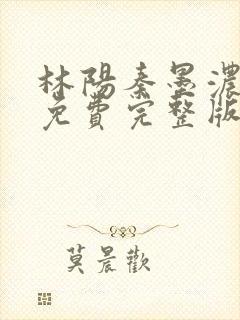 林陽秦墨濃
免費完整版
莫晨歡